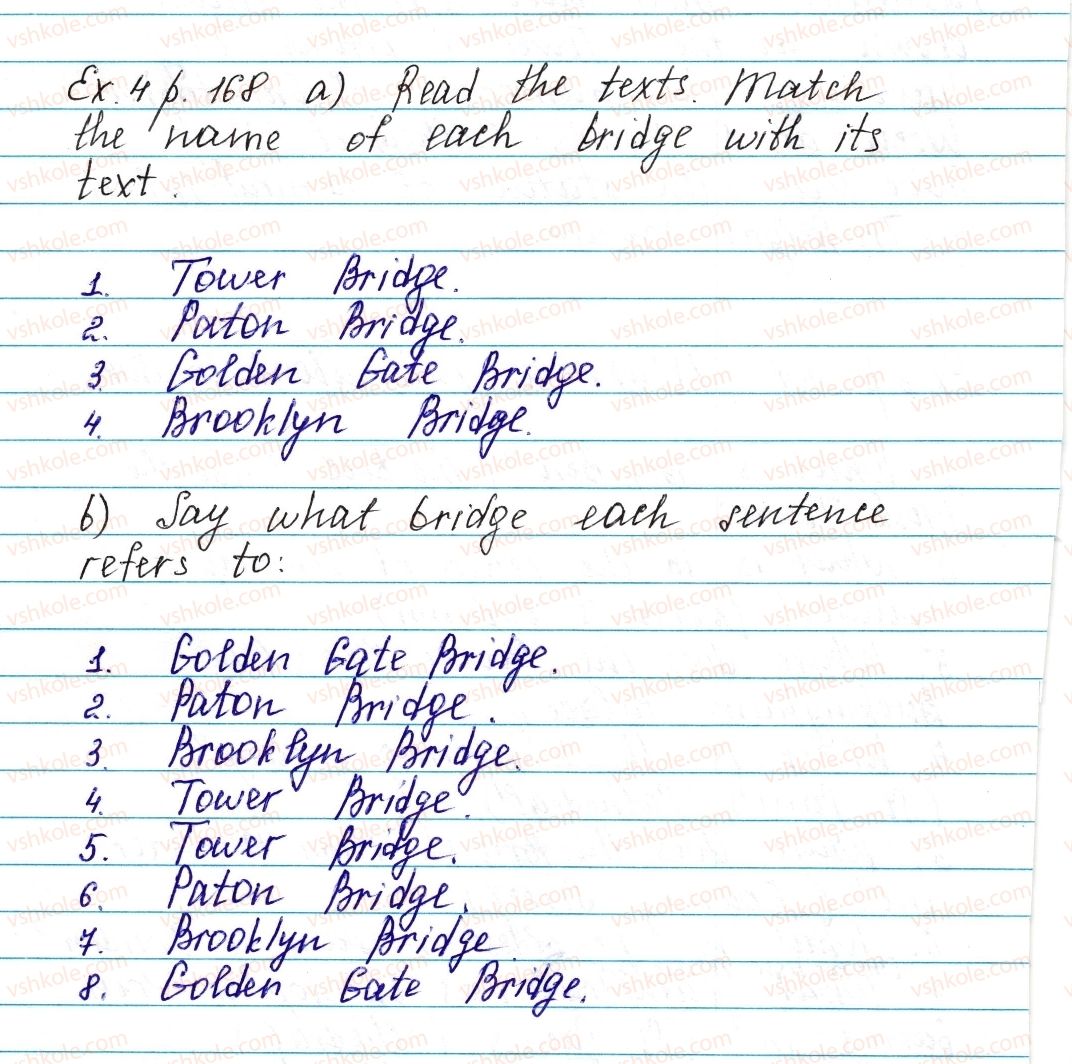 Ex. 4 p. 168 a) Read the texts. Match
the name of each bridge with its
text.
1. Tower Bridge.
2. Paton Bridge.
3. Golden Gate Bridge.
4. Brooklyn Bridge.
b) Say what bridge each sentence
refers to:
1. Golden Gate Bridge.
2. Paton Bridge.
3. Brooklyn Bridge.
4. Tower Bridge.
5. Tower Bridge.
6. Paton Bridge.
7. Brooklyn Bridge
8. Golden Gate Bridge.